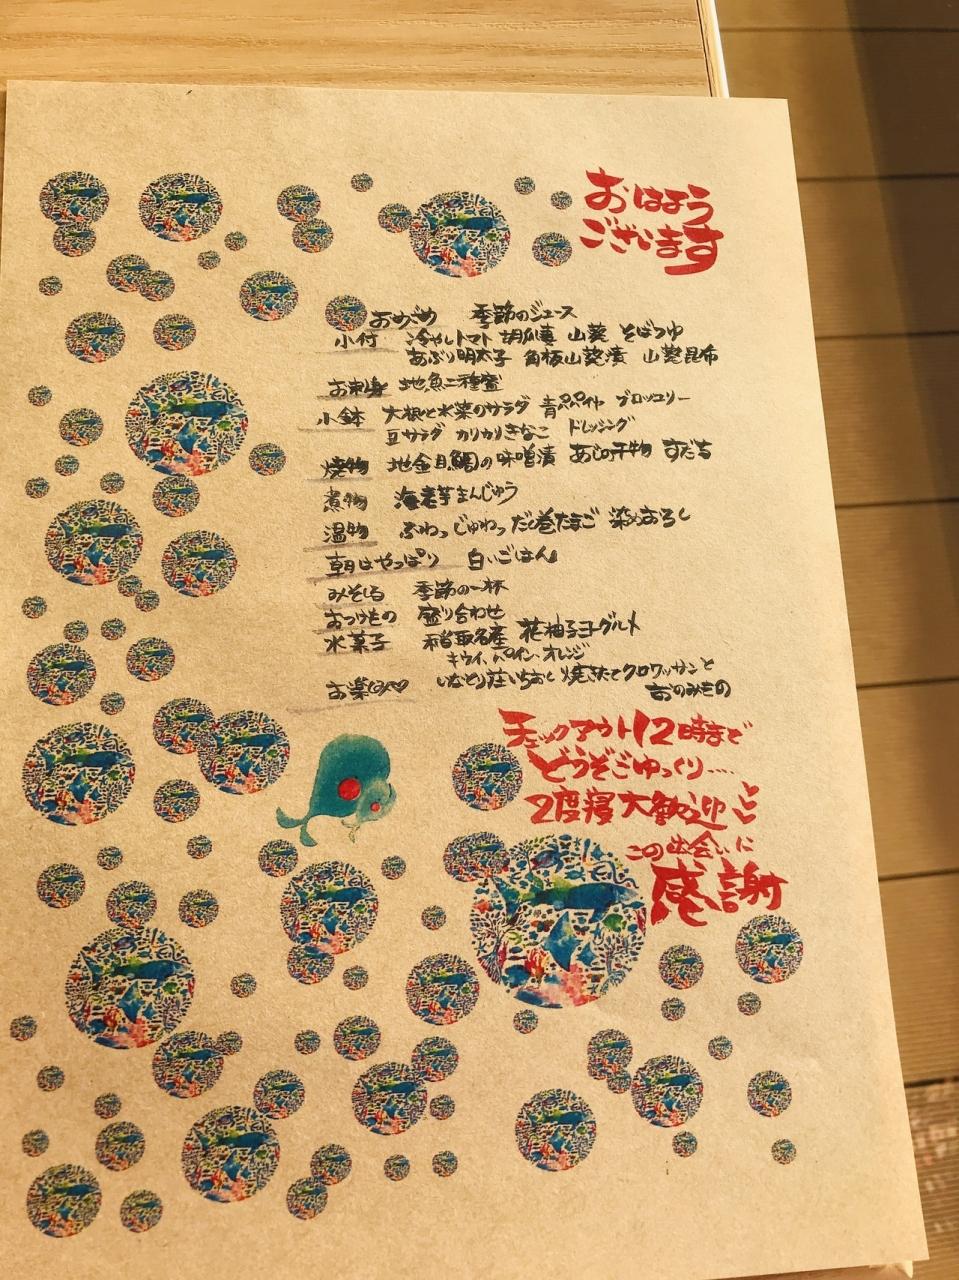 おはよう
ございます
おめざめ 季節のジュース
小付 冷やしトマト 胡麻 山葵 そばつゆ
あぶり明太子 角板山葵漬 山葵昆布
お刺身 地魚二種盛
小鉢 大根と水菜のサラダ 青パパイヤ ブロッコリー
豆サラダ カリカリきなこ ドレッシング
焼物 地金目鯛の味噌漬 あじの干物 すだち
煮物 海老芋まんじゅう
温物 ふわっじゅわっだし巻たまご 染めおろし
朝はやっぱり 白いごはん
みそしる 季節の一杯
おつけもの 盛り合わせ
水菓子 稲取名産 花柚子ヨーグルト
キウイ、パイン、オレンジ
お楽しみ♡ いなとり荘いちおし 焼きたてクロワッサンと
おのみもの
チェックアウト12時まで
どうぞごゆっくり....
2度寝大歓迎
この出会いに
感謝